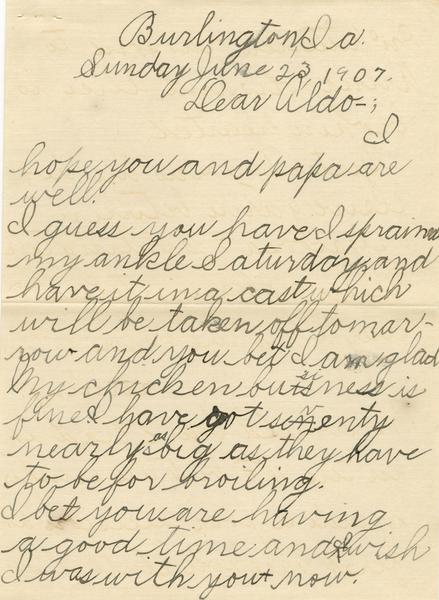 Burlington, Ia.
Sunday June 23, 1907.
Dear Aldo-;
I
hope you and papa are
well.
I guess you have I sprained
my ankle Saturday and
have it in a cast which
will be taken off tomar-
row and you bet I am glad
My chicken business is
fine I have got seventy
nearly as big as they have
to be for broiling.
I bet you are having
a good time and I wish
I was with you now.